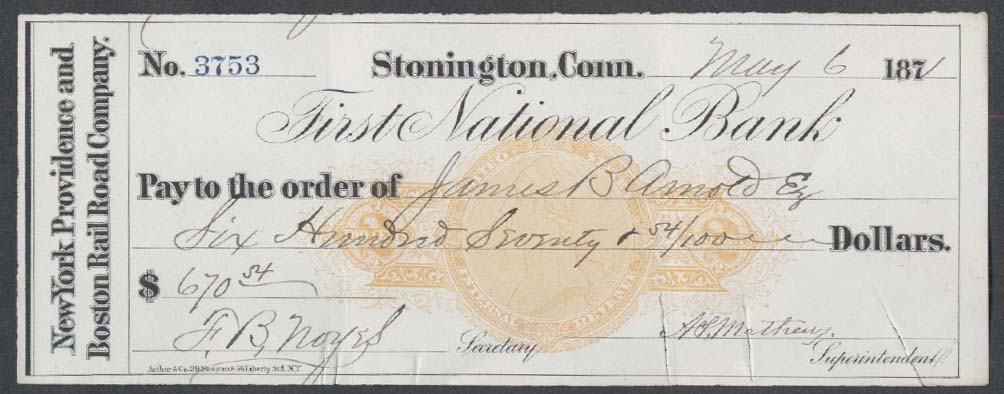 New York Providence and
Boston Rail Road Company.
No. 3753 Stonington, Conn. May 6 1871
First National Bank
Pay to the order of James B Arnold Ez
Six Hundred Seventy & 54/100 Dollars.
$ 670 54
F. B. Noyes Secretary
A S. Mathews. Superintendent
UNITED STATES
INTERNAL REVENUE